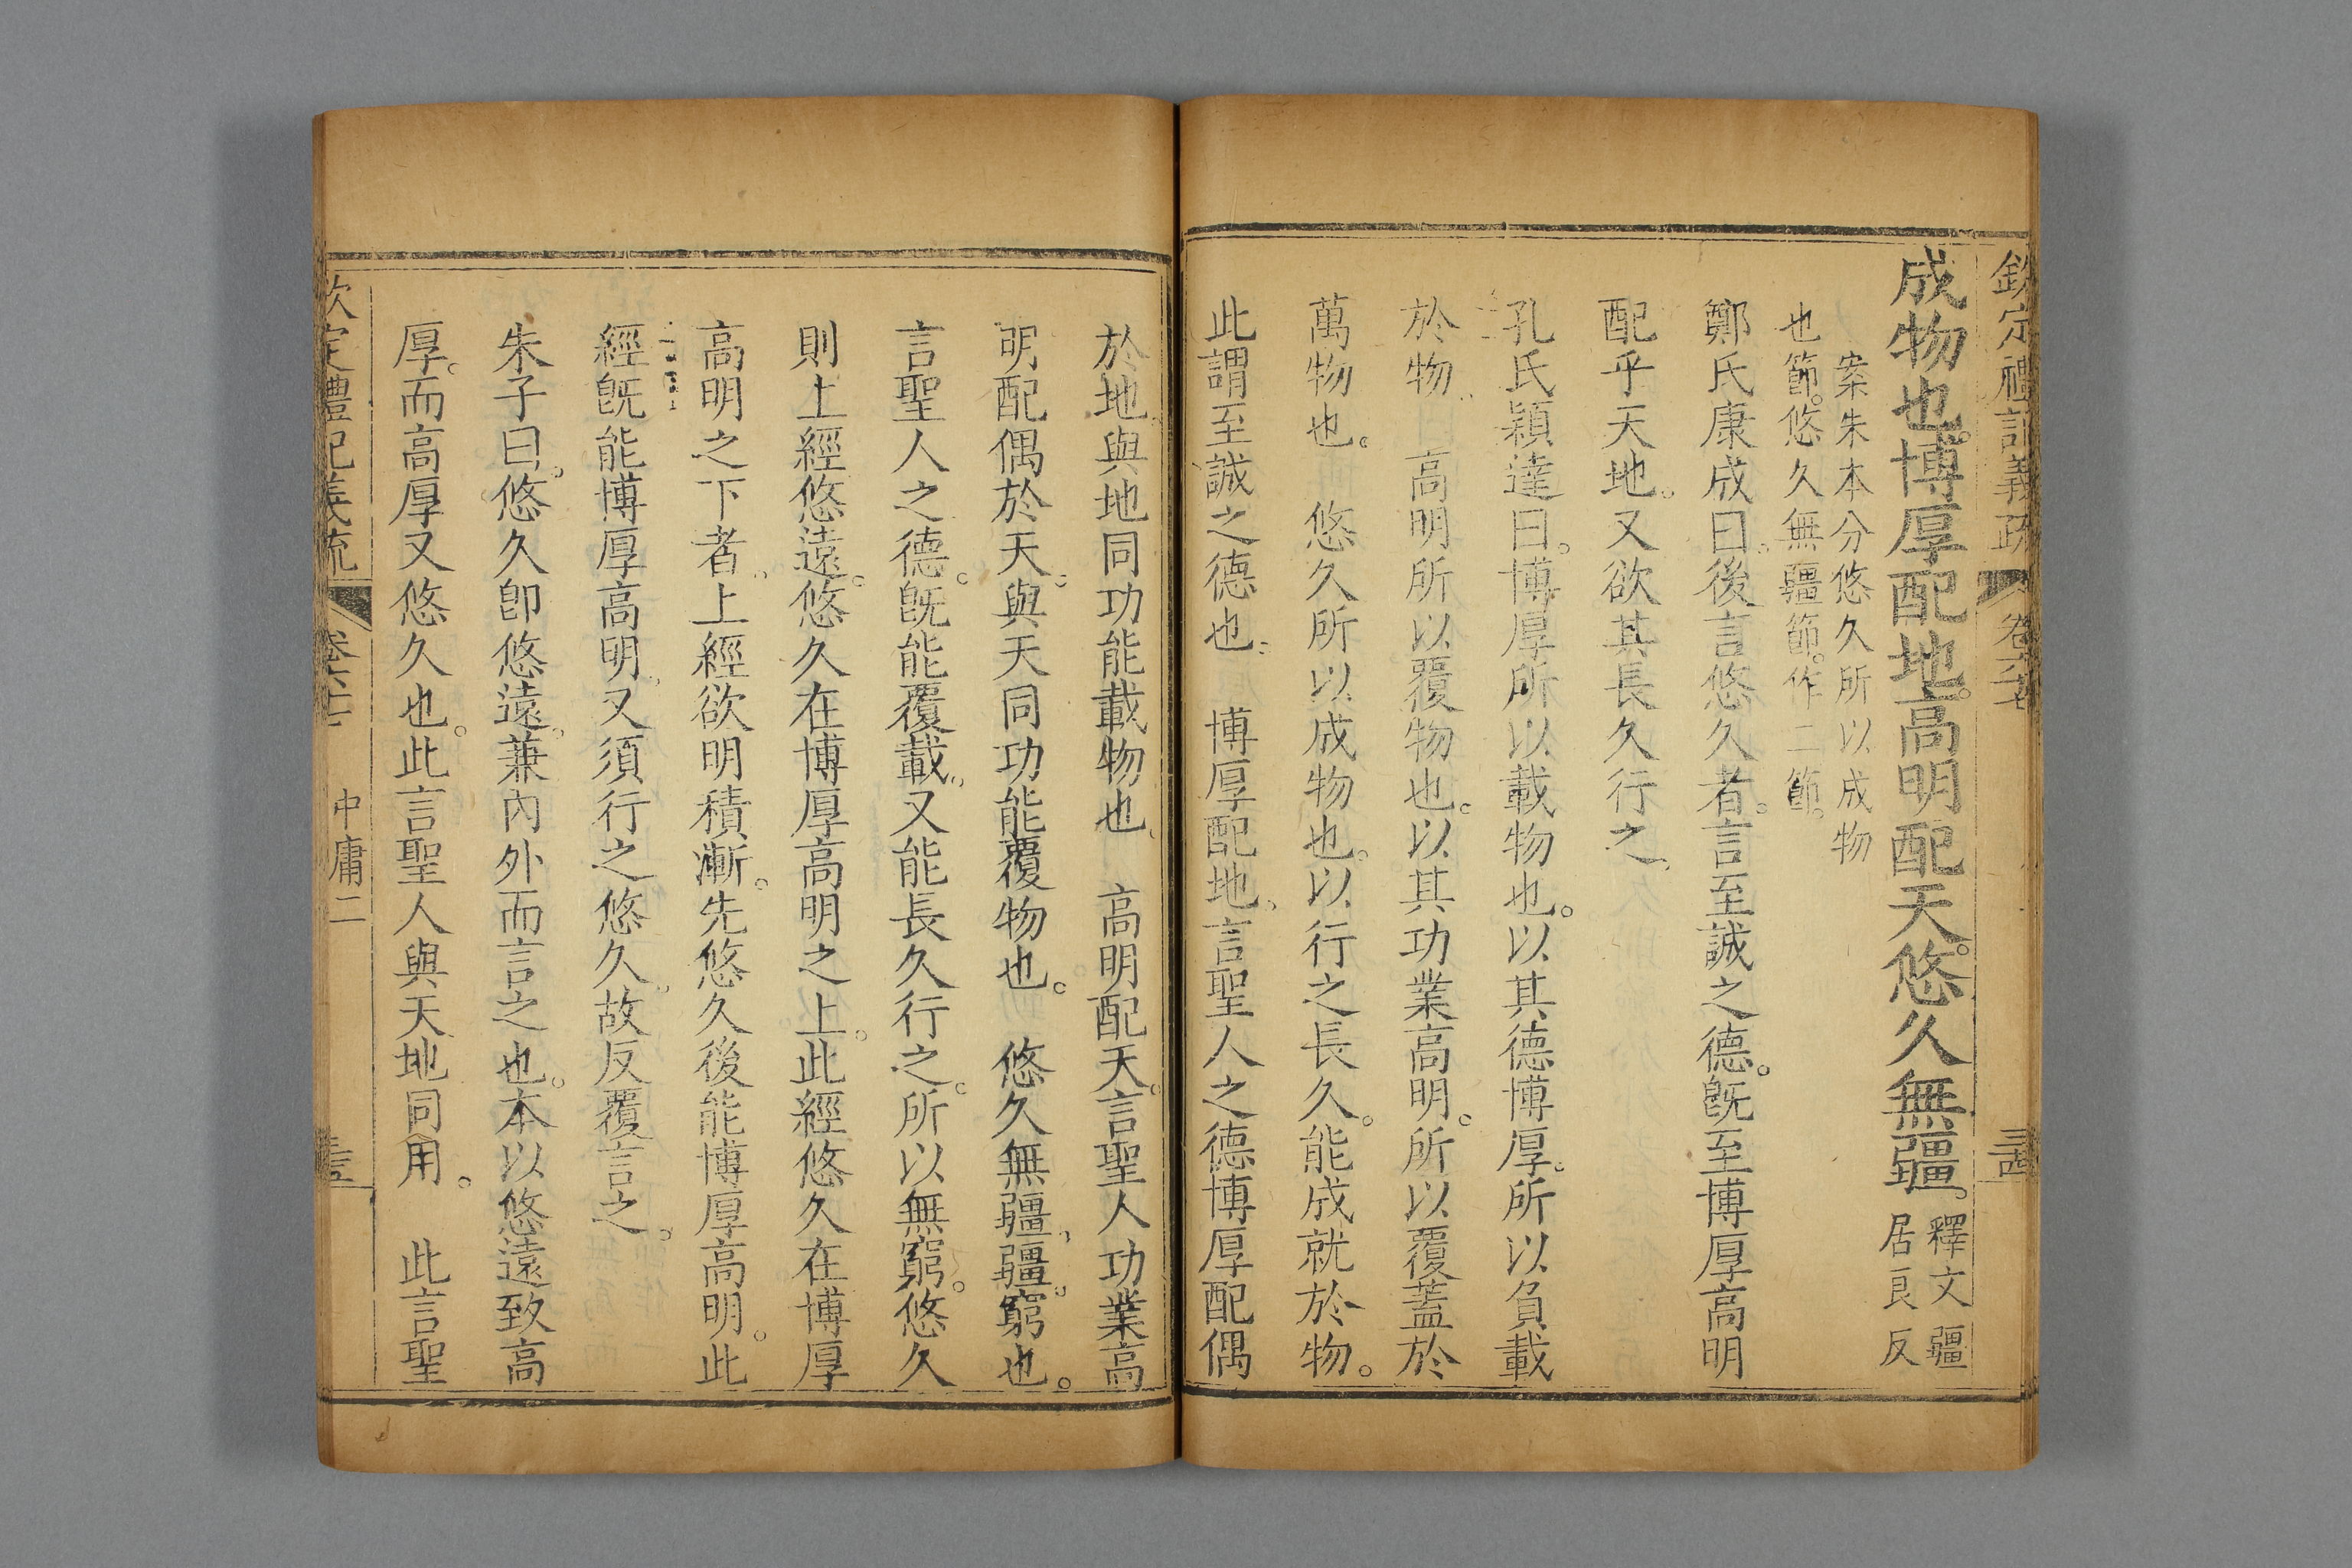 欽定禮記義疏 卷六七 三四
成物也。博厚配地。高明配天。悠久無疆。
釋文疆
居良反
案朱本分悠久所以成物
也節。悠久無疆節。作二節。
鄭氏康成曰。後言悠久者。言至誠之德。旣至博厚高明
配乎天地。又欲其長久行之。
孔氏穎達曰。博厚所以載物也。以其德博厚。所以負載
於物。 高明所以覆物也。以其功業高明。所以覆蓋於
萬物也。 悠久所以成物也。以行之長久。能成就於物。
此謂至誠之德也。 博厚配地。言聖人之德博厚配偶
於地。與地同功能載物也。 高明配天。言聖人功業高
明配偶於天。與天同功能覆物也。 悠久無疆。疆。窮也。
言聖人之德。旣能覆載。又能長久行之。所以無窮。悠久
則上經悠遠。悠久在博厚高明之上。此經悠久在博厚
高明之下者。上經欲明積漸。先悠久後能博厚高明。此
經旣能博厚高明。又須行之悠久。故反覆言之。
朱子曰。悠久卽悠遠。兼內外而言之也。本以悠遠致高
厚。而高厚又悠久也。此言聖人與天地同用。 此言聖
欽定禮記義疏 中庸二